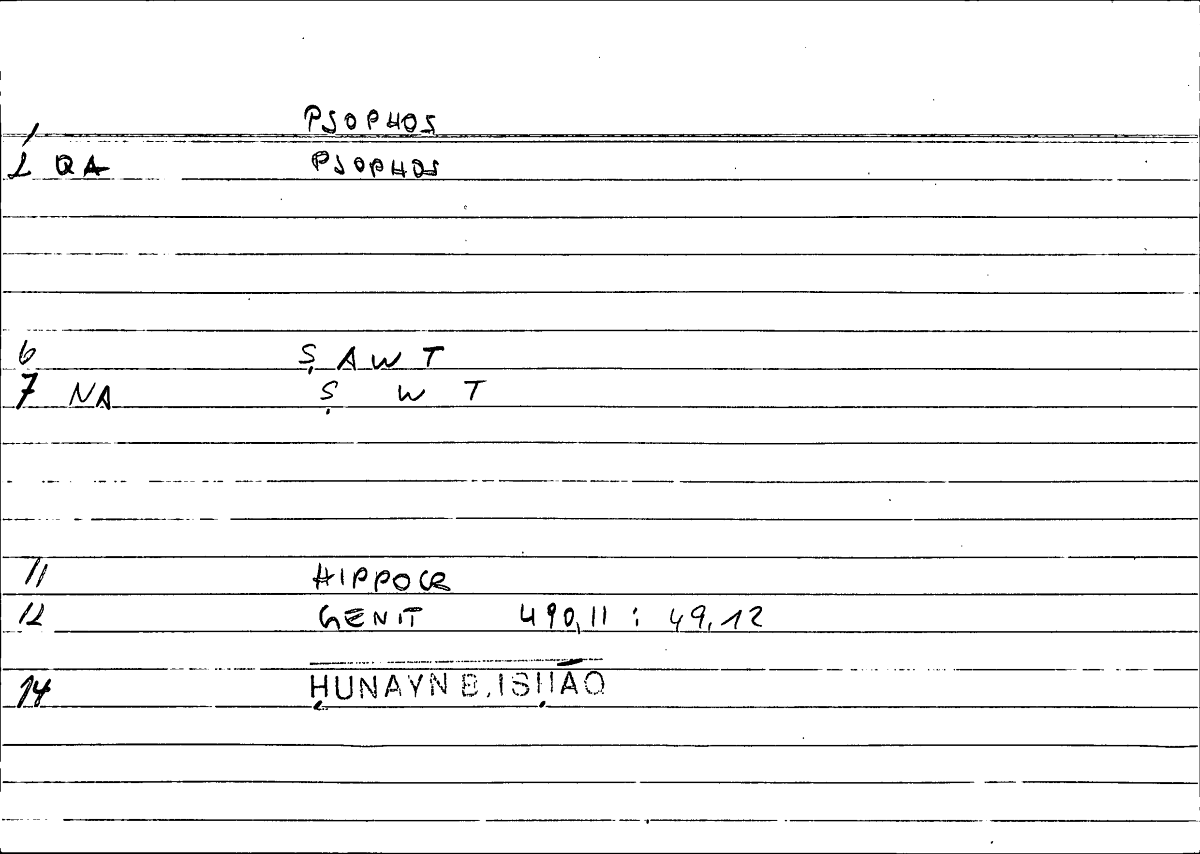 1 PSOPHOS
2 QA PSOPHOS
6 ṢAWT
7 NA Ṣ W T
11 HIPPOCR
12 GENIT 490,11 : 49,12
14 ḤUNAYN B. ISḤĀQ